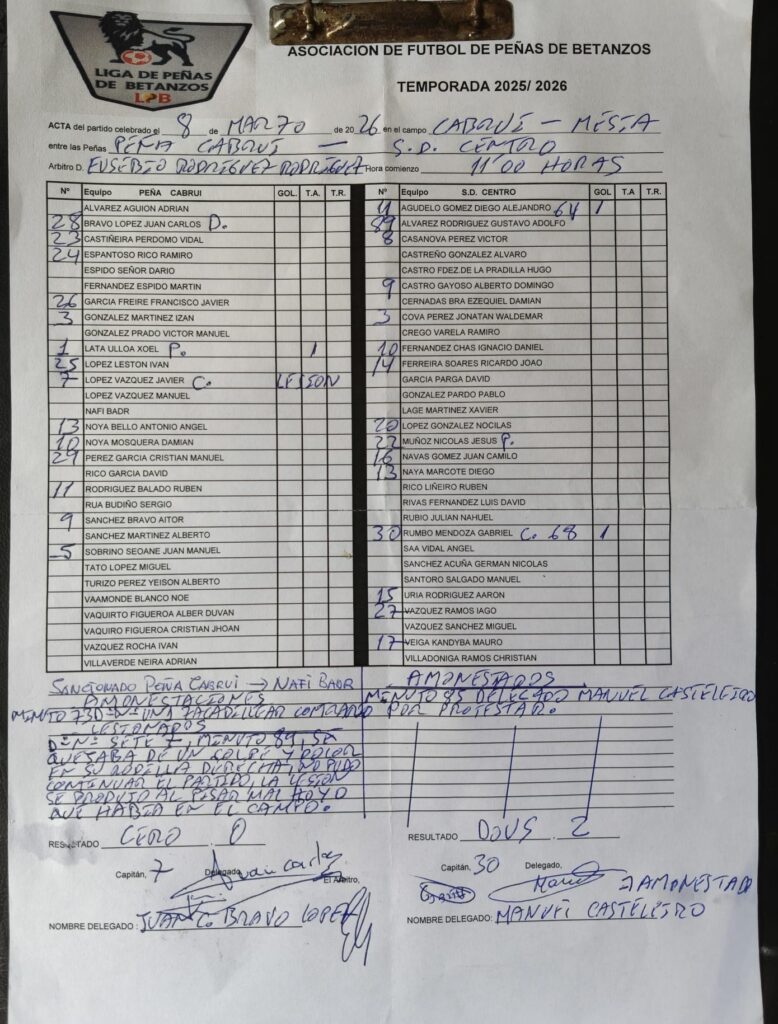 LIGA DE PEÑAS
DE BETANZOS
LPB
ASOCIACION DE FUTBOL DE PEÑAS DE BETANZOS
TEMPORADA 2025/ 2026
ACTA del partido celebrado el 8 de MARZO de 2026 en el campo CABRUÍ - MESÍA
entre las Peñas PEÑA CABRUÍ - S.D. CENTRO
Arbitro D. EUSEBIO RODRÍGUEZ RODRÍGUEZ Hora comienzo 11'00 HORAS
Nº Equipo PEÑA CABRUI GOL. T.A. T.R.
ALVAREZ AGUION ADRIAN
28 BRAVO LOPEZ JUAN CARLOS D.
23 CASTIÑEIRA PERDOMO VIDAL
24 ESPANTOSO RICO RAMIRO
ESPIDO SEÑOR DARIO
FERNANDEZ ESPIDO MARTIN
26 GARCIA FREIRE FRANCISCO JAVIER
3 GONZALEZ MARTINEZ IZAN
GONZALEZ PRADO VICTOR MANUEL
1 LATA ULLOA XOEL P. 1
25 LOPEZ LESTON IVAN
7 LOPEZ VAZQUEZ JAVIER C. LESION
LOPEZ VAZQUEZ MANUEL
NAFI BADR
13 NOYA BELLO ANTONIO ANGEL
10 NOYA MOSQUERA DAMIAN
29 PEREZ GARCIA CRISTIAN MANUEL
RICO GARCIA DAVID
11 RODRIGUEZ BALADO RUBEN
RUA BUDIÑO SERGIO
9 SANCHEZ BRAVO AITOR
SANCHEZ MARTINEZ ALBERTO
5 SOBRINO SEOANE JUAN MANUEL
TATO LOPEZ MIGUEL
TURIZO PEREZ YEISON ALBERTO
VAAMONDE BLANCO NOE
VAQUIRTO FIGUEROA ALBER DUVAN
VAQUIRO FIGUEROA CRISTIAN JHOAN
VAZQUEZ ROCHA IVAN
VILLAVERDE NEIRA ADRIAN
Nº Equipo S.D. CENTRO GOL T.A T.R.
AGUDELO GOMEZ DIEGO ALEJANDRO 64 1
89 ALVAREZ RODRIGUEZ GUSTAVO ADOLFO
8 CASANOVA PEREZ VICTOR
CASTREÑO GONZALEZ ALVARO
CASTRO FDEZ.DE LA PRADILLA HUGO
9 CASTRO GAYOSO ALBERTO DOMINGO
CERNADAS BRA EZEQUIEL DAMIAN
3 COVA PEREZ JONATAN WALDEMAR
CREGO VARELA RAMIRO
10 FERNANDEZ CHAS IGNACIO DANIEL
14 FERREIRA SOARES RICARDO JOAO
GARCIA PARGA DAVID
GONZALEZ PARDO PABLO
LAGE MARTINEZ XAVIER
20 LOPEZ GONZALEZ NOCILAS
22 MUÑOZ NICOLAS JESUS P.
16 NAVAS GOMEZ JUAN CAMILO
13 NAYA MARCOTE DIEGO
RICO LIÑEIRO RUBEN
RIVAS FERNANDEZ LUIS DAVID
RUBIO JULIAN NAHUEL
30 RUMBO MENDOZA GABRIEL C. 68 1
SAA VIDAL ANGEL
SANCHEZ ACUÑA GERMAN NICOLAS
SANTORO SALGADO MANUEL
15 URIA RODRIGUEZ AARON
27 VAZQUEZ RAMOS IAGO
VAZQUEZ SANCHEZ MIGUEL
17 VEIGA KANDYBA MAURO
VILLADONIGA RAMOS CHRISTIAN
SANCIONADO PEÑA CABRUI → NAFI BADR
AMONESTACIONES
MINUTO 73 UNA
LESIONADOS
SIETE 7, MINUTO 89, SE
QUEJABA DE UN GOLPE Y DOLOR
EN SU RODILLA DERECHA, NO PUDO
CONTINUAR EL PARTIDO, LA LESIÓN
SE PRODUJO AL PISAR MAL HOYO
QUE HABÍA EN EL CAMPO.
AMONESTADOS
MINUTO 85 DELEGADO MANUEL CASTELEIRO
POR PROTESTAR.
RESULTADO CERO 0
Capitán, 7 Delegado, Juan Carlos
El Arbitro,
NOMBRE DELEGADO : JUAN C. BRAVO LOPEZ
RESULTADO DOUS 2
Capitán, 30 Delegado,
AMONESTADO
NOMBRE DELEGADO: MANUEL CASTELEIRO